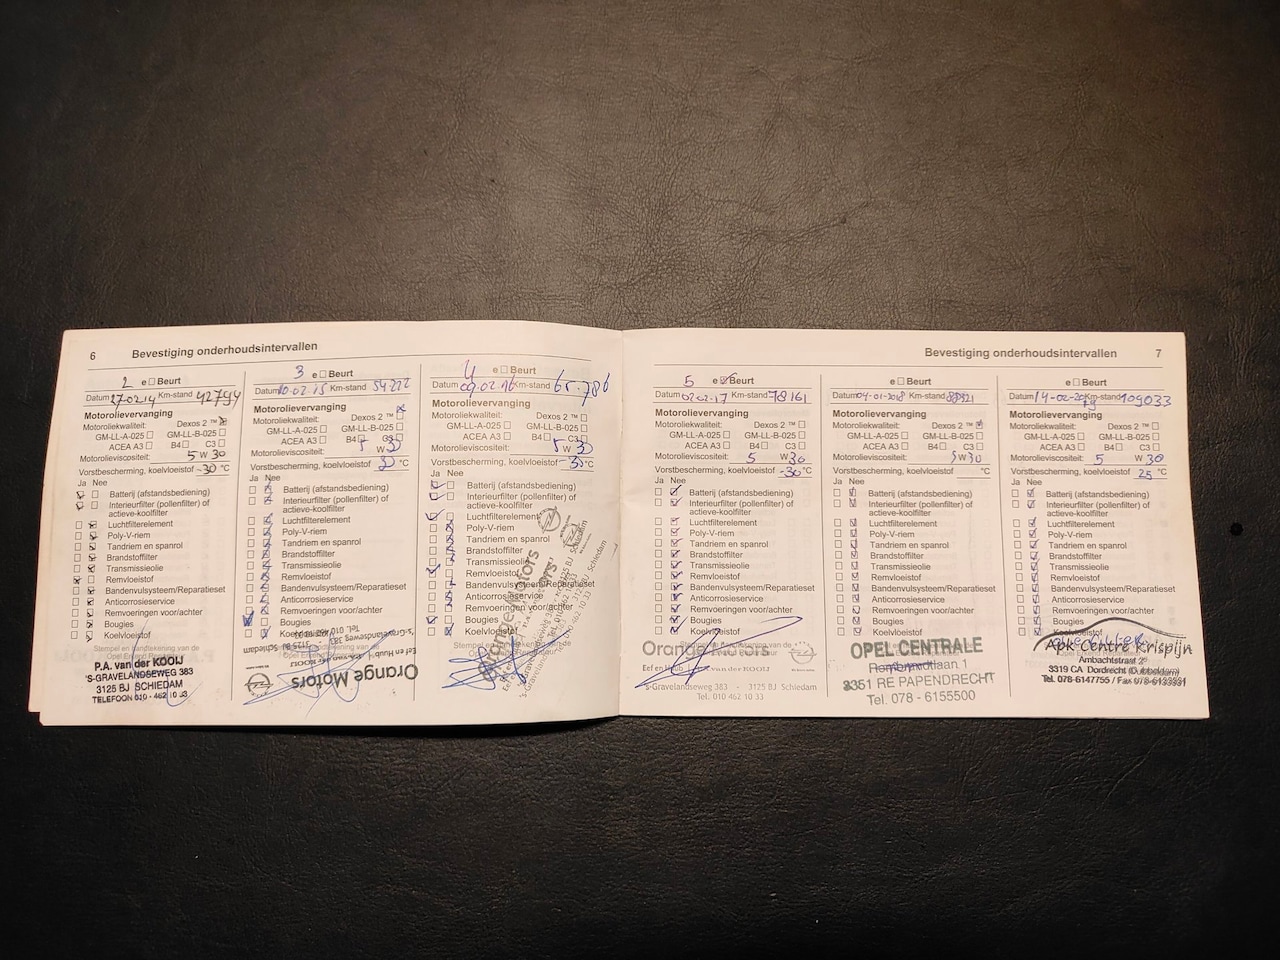 6 Bevestiging onderhoudsintervallen
2 e Beurt
Datum 27.02.14 Km-stand 42794
Motorolievervanging
Motoroliekwaliteit: Dexos 2 ™
GM-LL-A-025 GM-LL-B-025
ACEA A3 B4 C3
Motorolieviscositeit: 5 W 30
Vorstbescherming, koelvloeistof -30 °C
Ja Nee
Batterij (afstandsbediening)
Interieurfilter (pollenfilter) of
actieve-koolfilter
Luchtfilterelement
Poly-V-riem
Tandriem en spanrol
Brandstoffilter
Transmissieolie
Remvloeistof
Bandenvulsysteem/Reparatieset
Anticorrosieservice
Remvoeringen voor/achter
Bougies
Koelvloeistof
Stempel en handtekening van de
P.A. van der KOOIJ
'S-GRAVELANDSEWEG 383
3125 BJ SCHIEDAM
TELEFOON 010 - 462 10 33
3 e Beurt
Datum 10.02.15 Km-stand 54222
Motorolievervanging
Motoroliekwaliteit: Dexos 2 ™
GM-LL-A-025 GM-LL-B-025
ACEA A3 B4 C3
Motorolieviscositeit: 5 W 30
Vorstbescherming, koelvloeistof °C
Ja Nee
Batterij (afstandsbediening)
Interieurfilter (pollenfilter) of
actieve-koolfilter
Luchtfilterelement
Poly-V-riem
Tandriem en spanrol
Brandstoffilter
Transmissieolie
Remvloeistof
Bandenvulsysteem/Reparatieset
Anticorrosieservice
Remvoeringen voor/achter
Bougies
Koelvloeistof
Orange Motors
's-Gravelandseweg 383
Tel. 010 462 10 33
4 e Beurt
Datum 09.02.16 Km-stand 65.786
Motorolievervanging
Motoroliekwaliteit: Dexos 2 ™
GM-LL-A-025 GM-LL-B-025
ACEA A3 B4 C3
Motorolieviscositeit: 5 W 30
Vorstbescherming, koelvloeistof -30 °C
Ja Nee
Batterij (afstandsbediening)
Interieurfilter (pollenfilter) of
actieve-koolfilter
Luchtfilterelement
Poly-V-riem
Tandriem en spanrol
Brandstoffilter
Transmissieolie
Remvloeistof
Bandenvulsysteem/Reparatieset
Anticorrosieservice
Remvoeringen voor/achter
Bougies
Koelvloeistof
Orange Motors
Bevestiging onderhoudsintervallen 7
5 e Beurt
Datum 02.02.17 Km-stand 78161
Motorolievervanging
Motoroliekwaliteit: Dexos 2 ™
GM-LL-A-025 GM-LL-B-025
ACEA A3 B4 C3
Motorolieviscositeit: 5 W 30
Vorstbescherming, koelvloeistof -30 °C
Ja Nee
Batterij (afstandsbediening)
Interieurfilter (pollenfilter) of
actieve-koolfilter
Luchtfilterelement
Poly-V-riem
Tandriem en spanrol
Brandstoffilter
Transmissieolie
Remvloeistof
Bandenvulsysteem/Reparatieset
Anticorrosieservice
Remvoeringen voor/achter
Bougies
Koelvloeistof
Orange Motors
Eef en Huub van der KOOIJ
's-Gravelandseweg 383 - 3125 BJ Schiedam
Tel. 010 462 10 33
e Beurt
Datum 04-01-2018 Km-stand
Motorolievervanging
Motoroliekwaliteit: Dexos 2 ™
GM-LL-A-025 GM-LL-B-025
ACEA A3 B4 C3
Motorolieviscositeit: 5 W 30
Vorstbescherming, koelvloeistof °C
Ja Nee
Batterij (afstandsbediening)
Interieurfilter (pollenfilter) of
actieve-koolfilter
Luchtfilterelement
Poly-V-riem
Tandriem en spanrol
Brandstoffilter
Transmissieolie
Remvloeistof
Bandenvulsysteem/Reparatieset
Anticorrosieservice
Remvoeringen voor/achter
Bougies
Koelvloeistof
OPEL CENTRALE
Rembrandtlaan 1
3351 RE PAPENDRECHT
Tel. 078 - 6155500
e Beurt
Datum 14-02-2019 Km-stand 109033
Motorolievervanging
Motoroliekwaliteit: Dexos 2 ™
GM-LL-A-025 GM-LL-B-025
ACEA A3 B4 C3
Motorolieviscositeit: 5 W 30
Vorstbescherming, koelvloeistof 25 °C
Ja Nee
Batterij (afstandsbediening)
Interieurfilter (pollenfilter) of
actieve-koolfilter
Luchtfilterelement
Poly-V-riem
Tandriem en spanrol
Brandstoffilter
Transmissieolie
Remvloeistof
Bandenvulsysteem/Reparatieset
Anticorrosieservice
Remvoeringen voor/achter
Bougies
Koelvloeistof
Apk Centre Krispijn
Ambachtstraat 2
3319 CA Dordrecht (Dubbeldam)
Tel. 078-6147755 / Fax